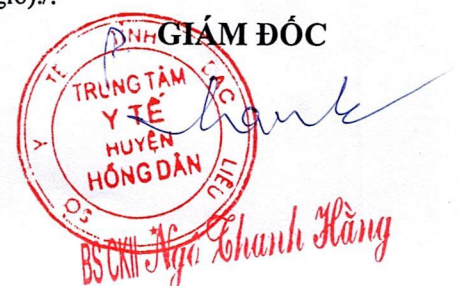 GIÁM ĐỐC
SỞ Y TẾ TỈNH BẠC LIÊU
TRUNG TÂM
Y TẾ
HUYỆN
HỒNG DÂN
BS CKII Ngô Thanh Hằng